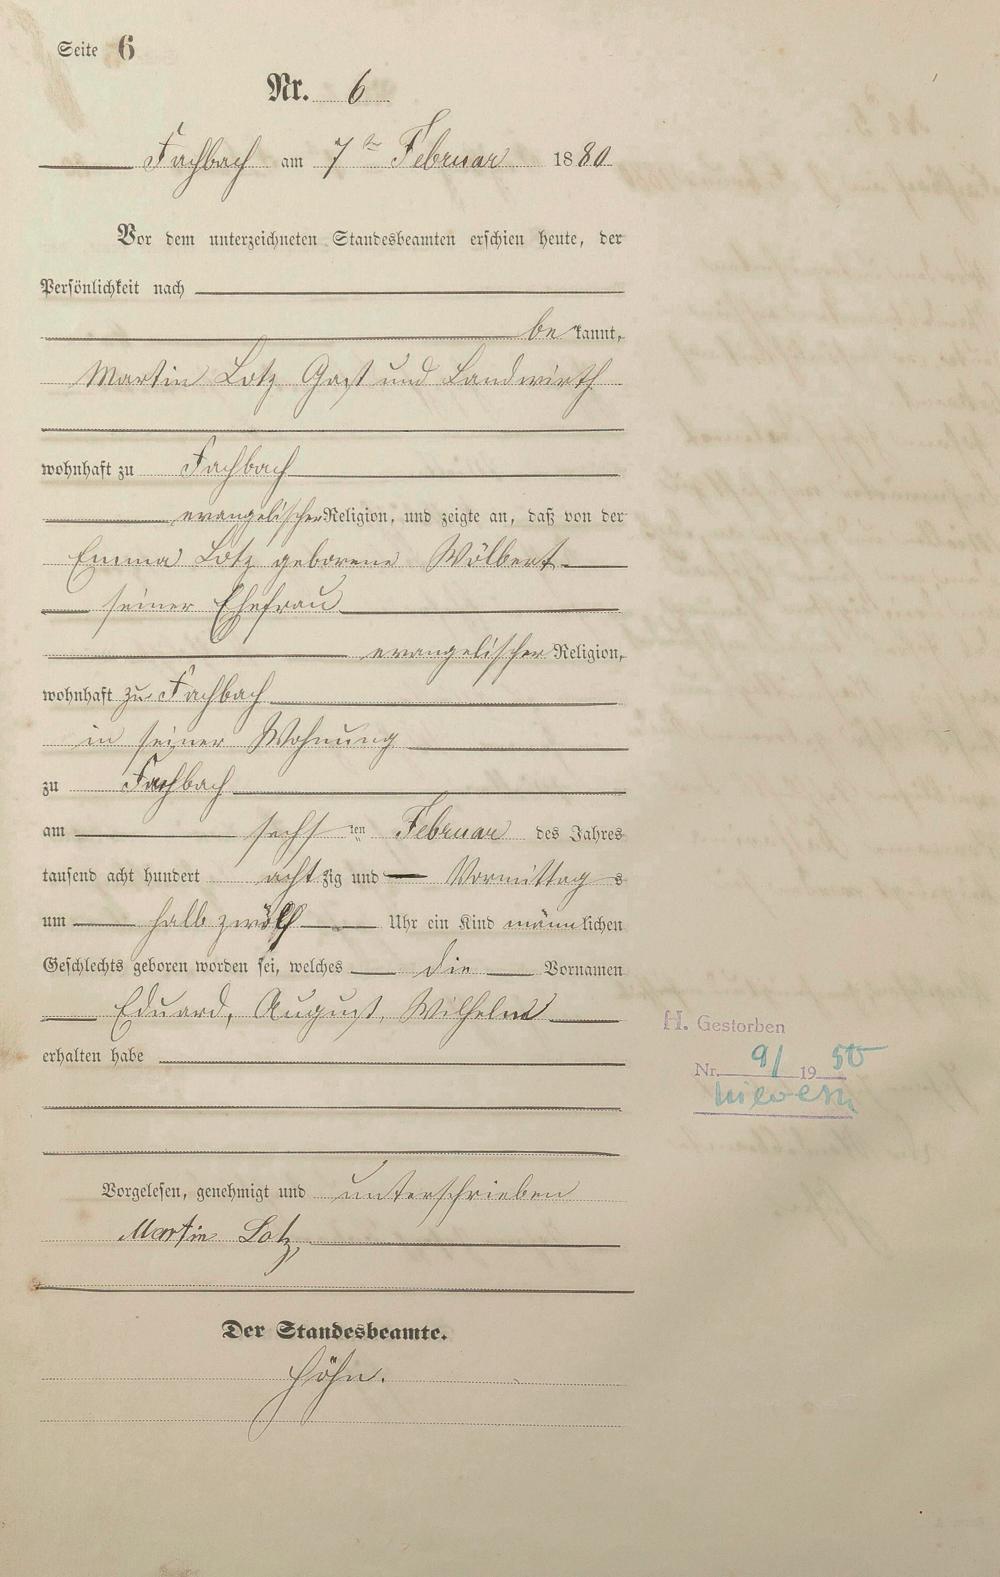 Seite 6
Nr. 6
Fachbach am 7ten Februar 1880
Vor dem unterzeichneten Standesbeamten erschien heute, der
Persönlichkeit nach
be kannt,
Martin Lotz Gast und Landwirth
wohnhaft zu Fachbach
evangelischer Religion, und zeigte an, daß von der
Emma Lotz geborene Wölbert
seiner Ehefrau
evangelischer Religion,
wohnhaft zu Fachbach
in seiner Wohnung
zu Fachbach
am sechsten Februar des Jahres
tausend acht hundert achtzig und Vormittags
um halb zwölf Uhr ein Kind männlichen
Geschlechts geboren worden sei, welches die Vornamen
Eduard, August, Wilhelm
erhalten habe
H. Gestorben
Nr. 9/ 1950
Nievern
Vorgelesen, genehmigt und unterschrieben
Martin Lotz,
Der Standesbeamte.
Höhn.